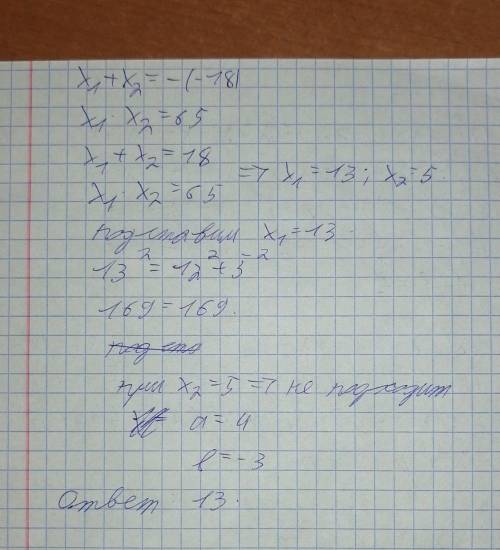 x₁ + x₂ = -(-18)
x₁ · x₂ = 65
x₁ + x₂ = 18
x₁ · x₂ = 65 => x₁ = 13; x₂ = 5.
подставим x₁ = 13.
13² = 12² + 5²
169 = 169.
при x₂ = 5 => не подходит
a = 4
b = -3
Ответ 13.